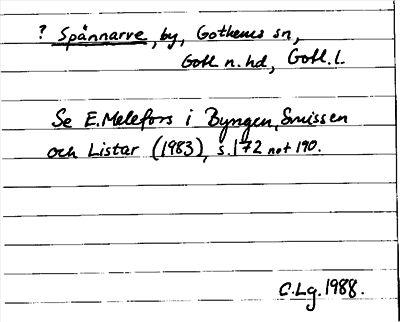 ? Spännarve, by, Gothems sn,
Gotl. n. hd, Gotl. l.
Se E. Melefors i Byngen, Snissen
och Listar (1983), s. 172 not 190.
C. Lg. 1988.